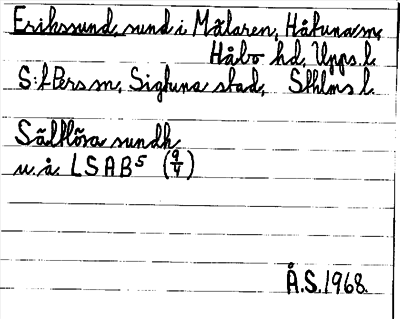 Erikssund, sund i Mälaren, Håtuna sn,
Håbo hd, Upps. l.
S:t Pers sn, Sigtuna stad, Sthlms l.
Sältlösa sundh
u. å. LSAB⁵ (9/4)
Å.S. 1968.